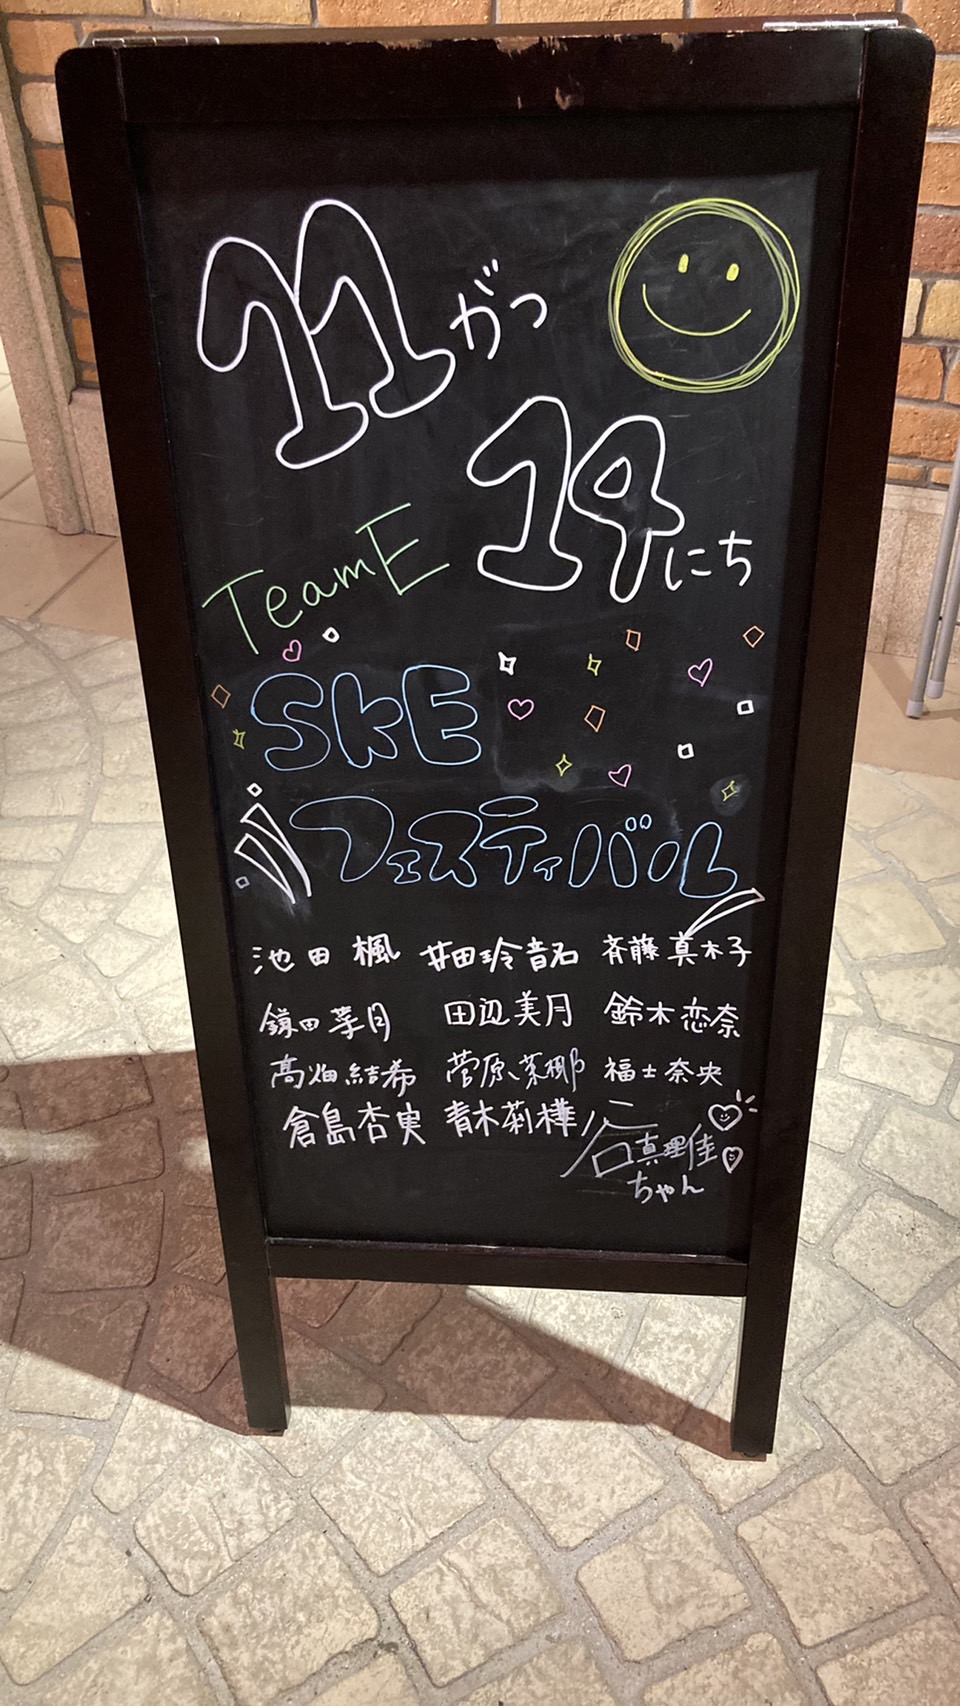 11がつ
14にち
TeamE
SKE
フェスティバル
池田楓 井田玲音名 斉藤真木子
鎌田菜月 田辺美月 鈴木恋奈
高畑結希 菅原茉椰 福士奈央
倉島杏実 青木莉樺 谷真理佳
ちゃん